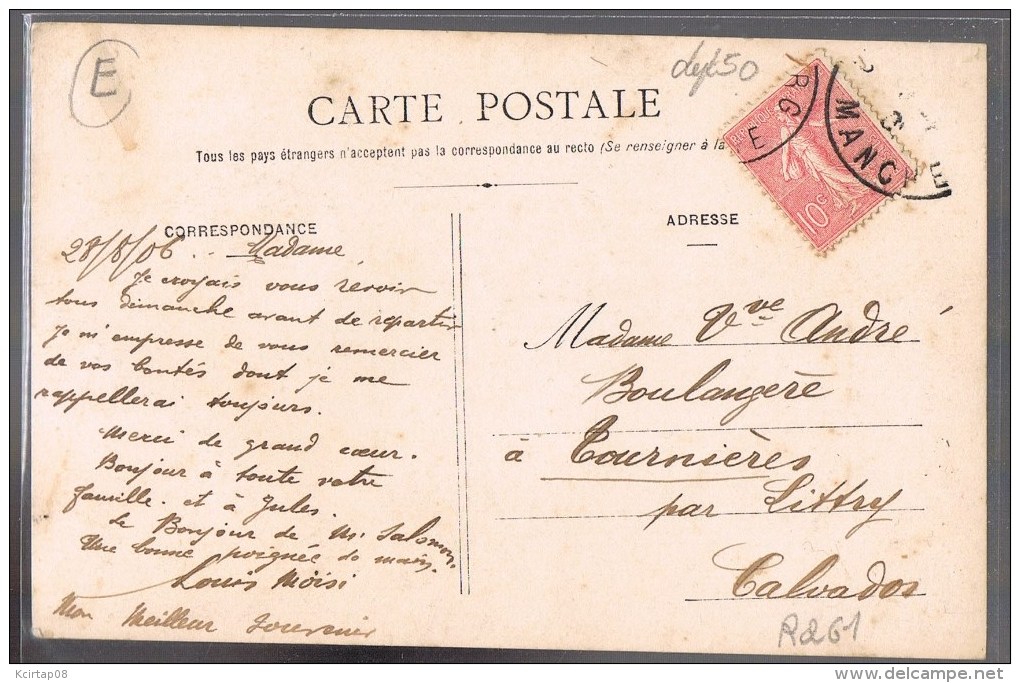 E
50
CARTE POSTALE
Tous les pays étrangers n'acceptent pas la correspondance au recto (Se renseigner à la
RG
E
MANC
10c
CORRESPONDANCE
28/8/06 .. Madame
Je croyais vous revoir
tous dimanche avant de repartir
Je m'empresse de vous remercier
de vos bontés dont je me
rappellerai toujours.
Merci de grand cœur.
Bonjour à toute votre
famille. et à Jules.
le Bonjour de Mr Salomon.
Une bonne poignée de main.
Louis Moisi
Mon Meilleur Souvenir
ADRESSE
Madame Vve André
Boulangère
à Tournières
par Littry
Calvados
R261
Kcirtap08
delcampe.net